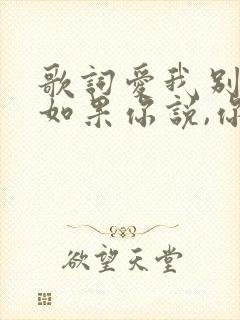 歌詞愛我別
如果你說,你
欲望天堂